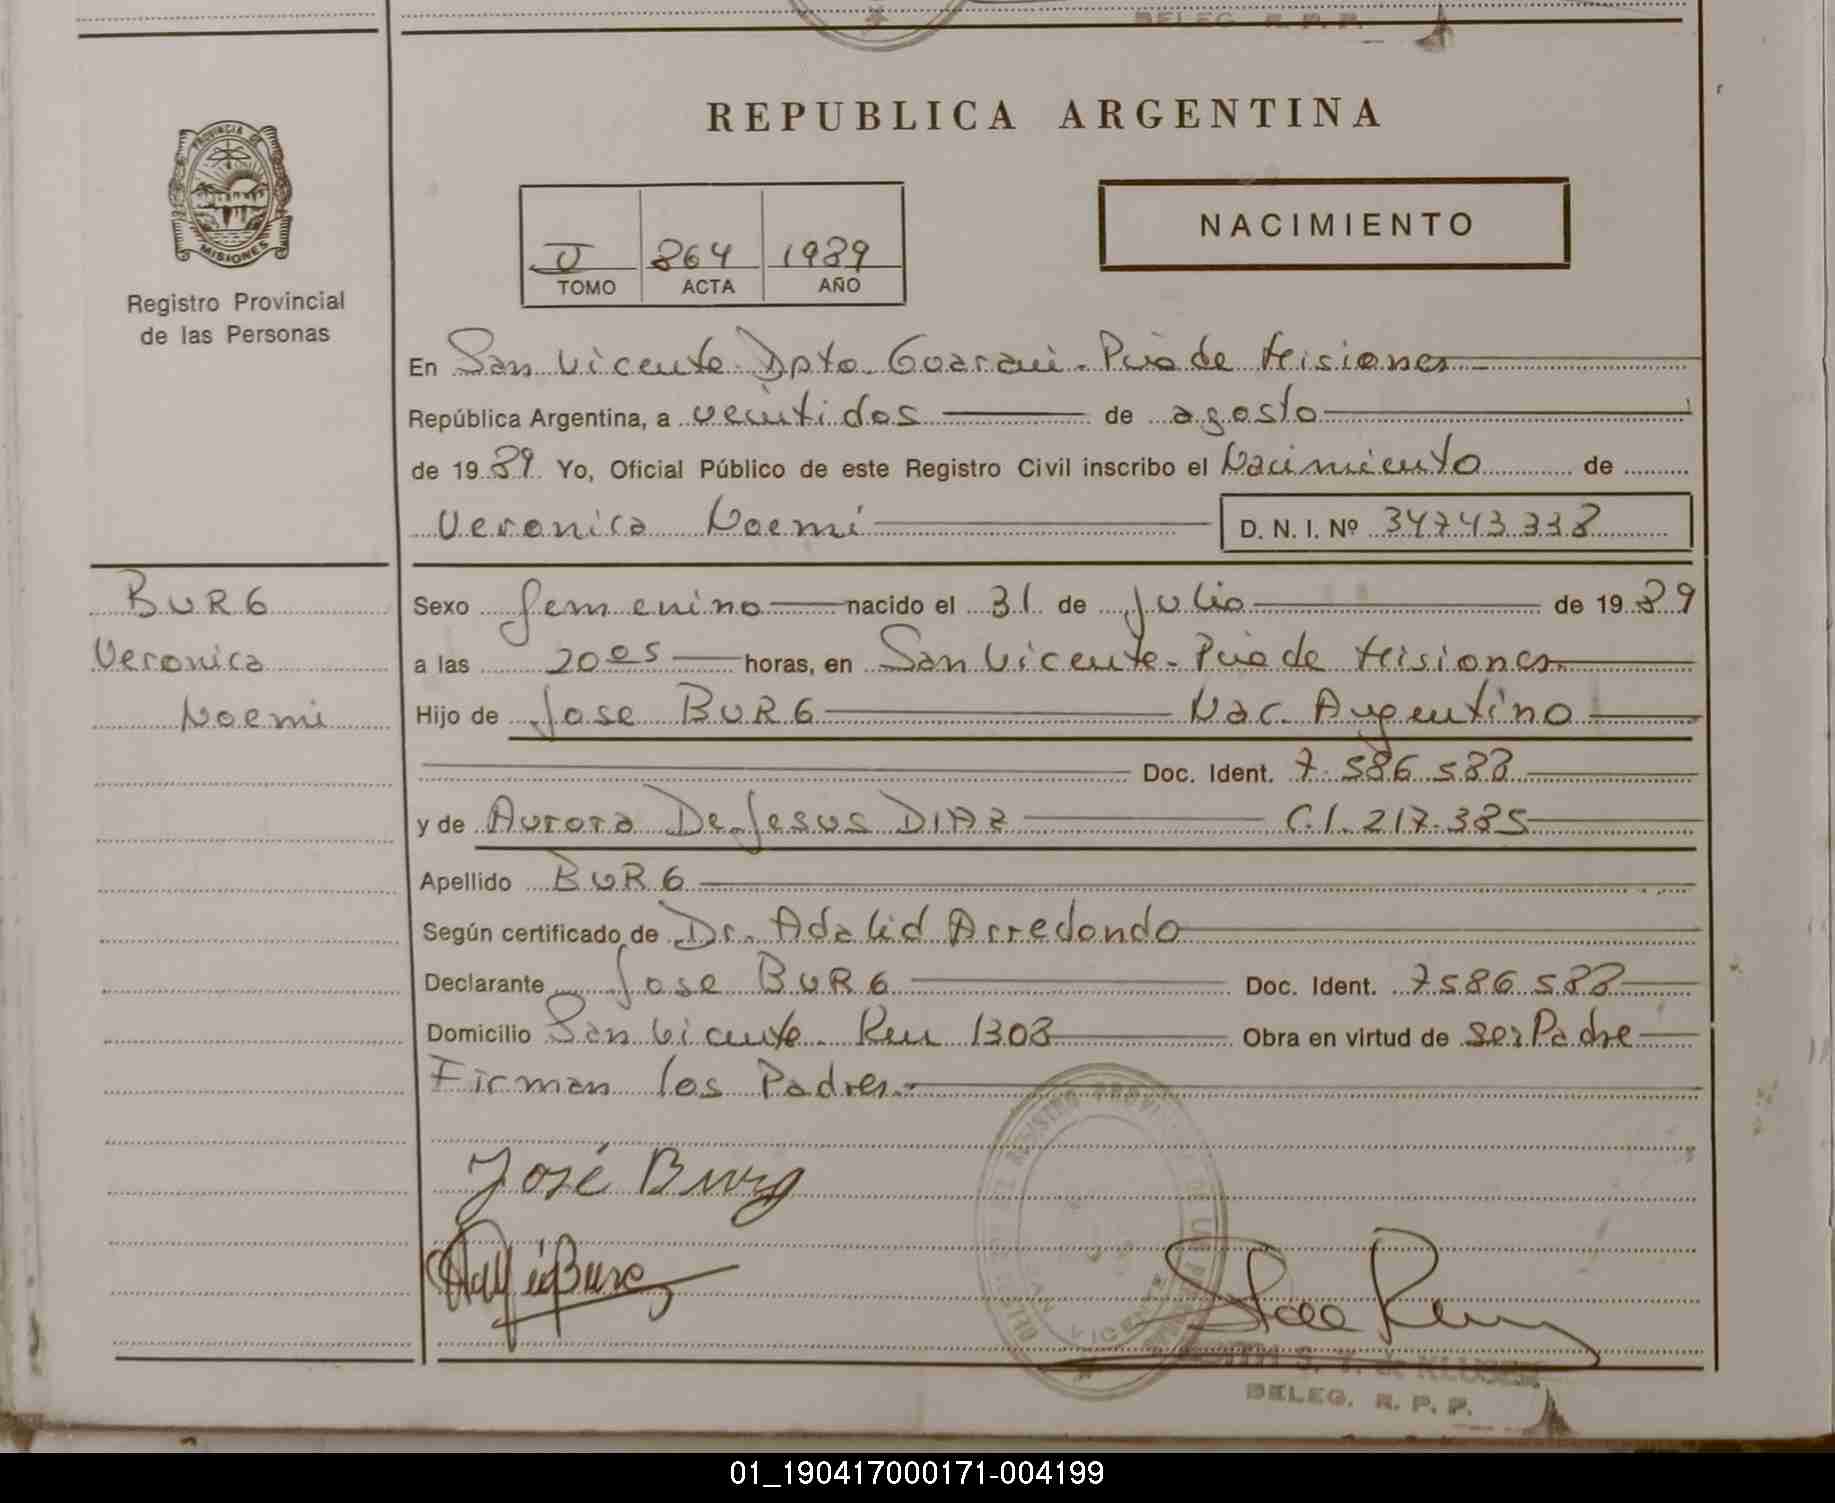 REPUBLICA ARGENTINA
PROVINCIA DE
MISIONES
Registro Provincial
de las Personas
864 1989
TOMO ACTA AÑO
NACIMIENTO
En San Vicente Dpto. Guarani - Pcia de Misiones
República Argentina, a veintidos de agosto
de 1989 Yo, Oficial Público de este Registro Civil inscribo el Nacimiento de
Veronica Noemi D. N. I. Nº 34743338
BURG
Veronica
Noemi
Sexo femenino nacido el 31 de Julio de 1989
a las 20 05 horas, en San Vicente - Pcia de Misiones
Hijo de Jose BURG Nac. Argentino
Doc. Ident. 7.586.588
y de Aurora De Jesus DIAZ C.I. 217.385
Apellido BURG
Según certificado de Dr. Adalid Arredondo
Declarante Jose BURG Doc. Ident. 7586588
Domicilio San Vicente - Km 1308 Obra en virtud de ser Padre
Firman los Padres.-
José Burg
DELEG. R. P. P.
01_190417000171-004199